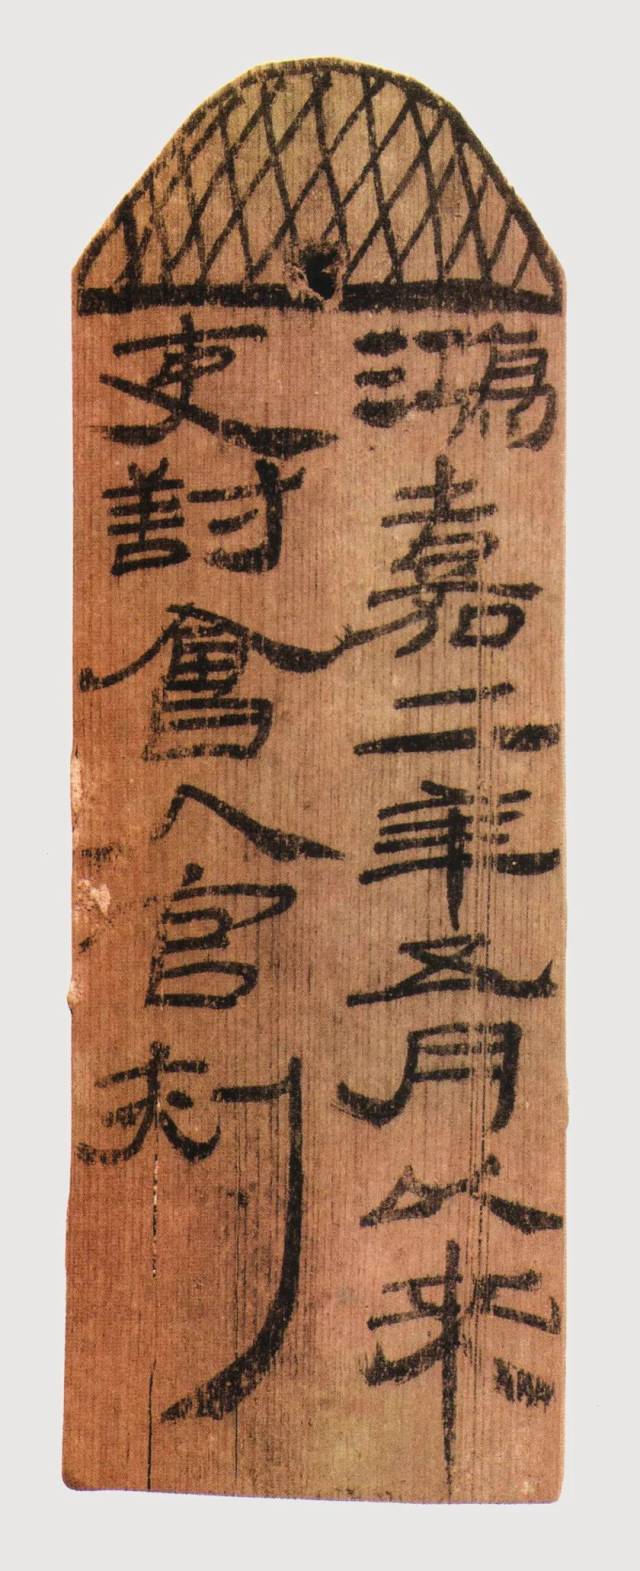 鴻嘉二年五月以來
吏對會入官刺